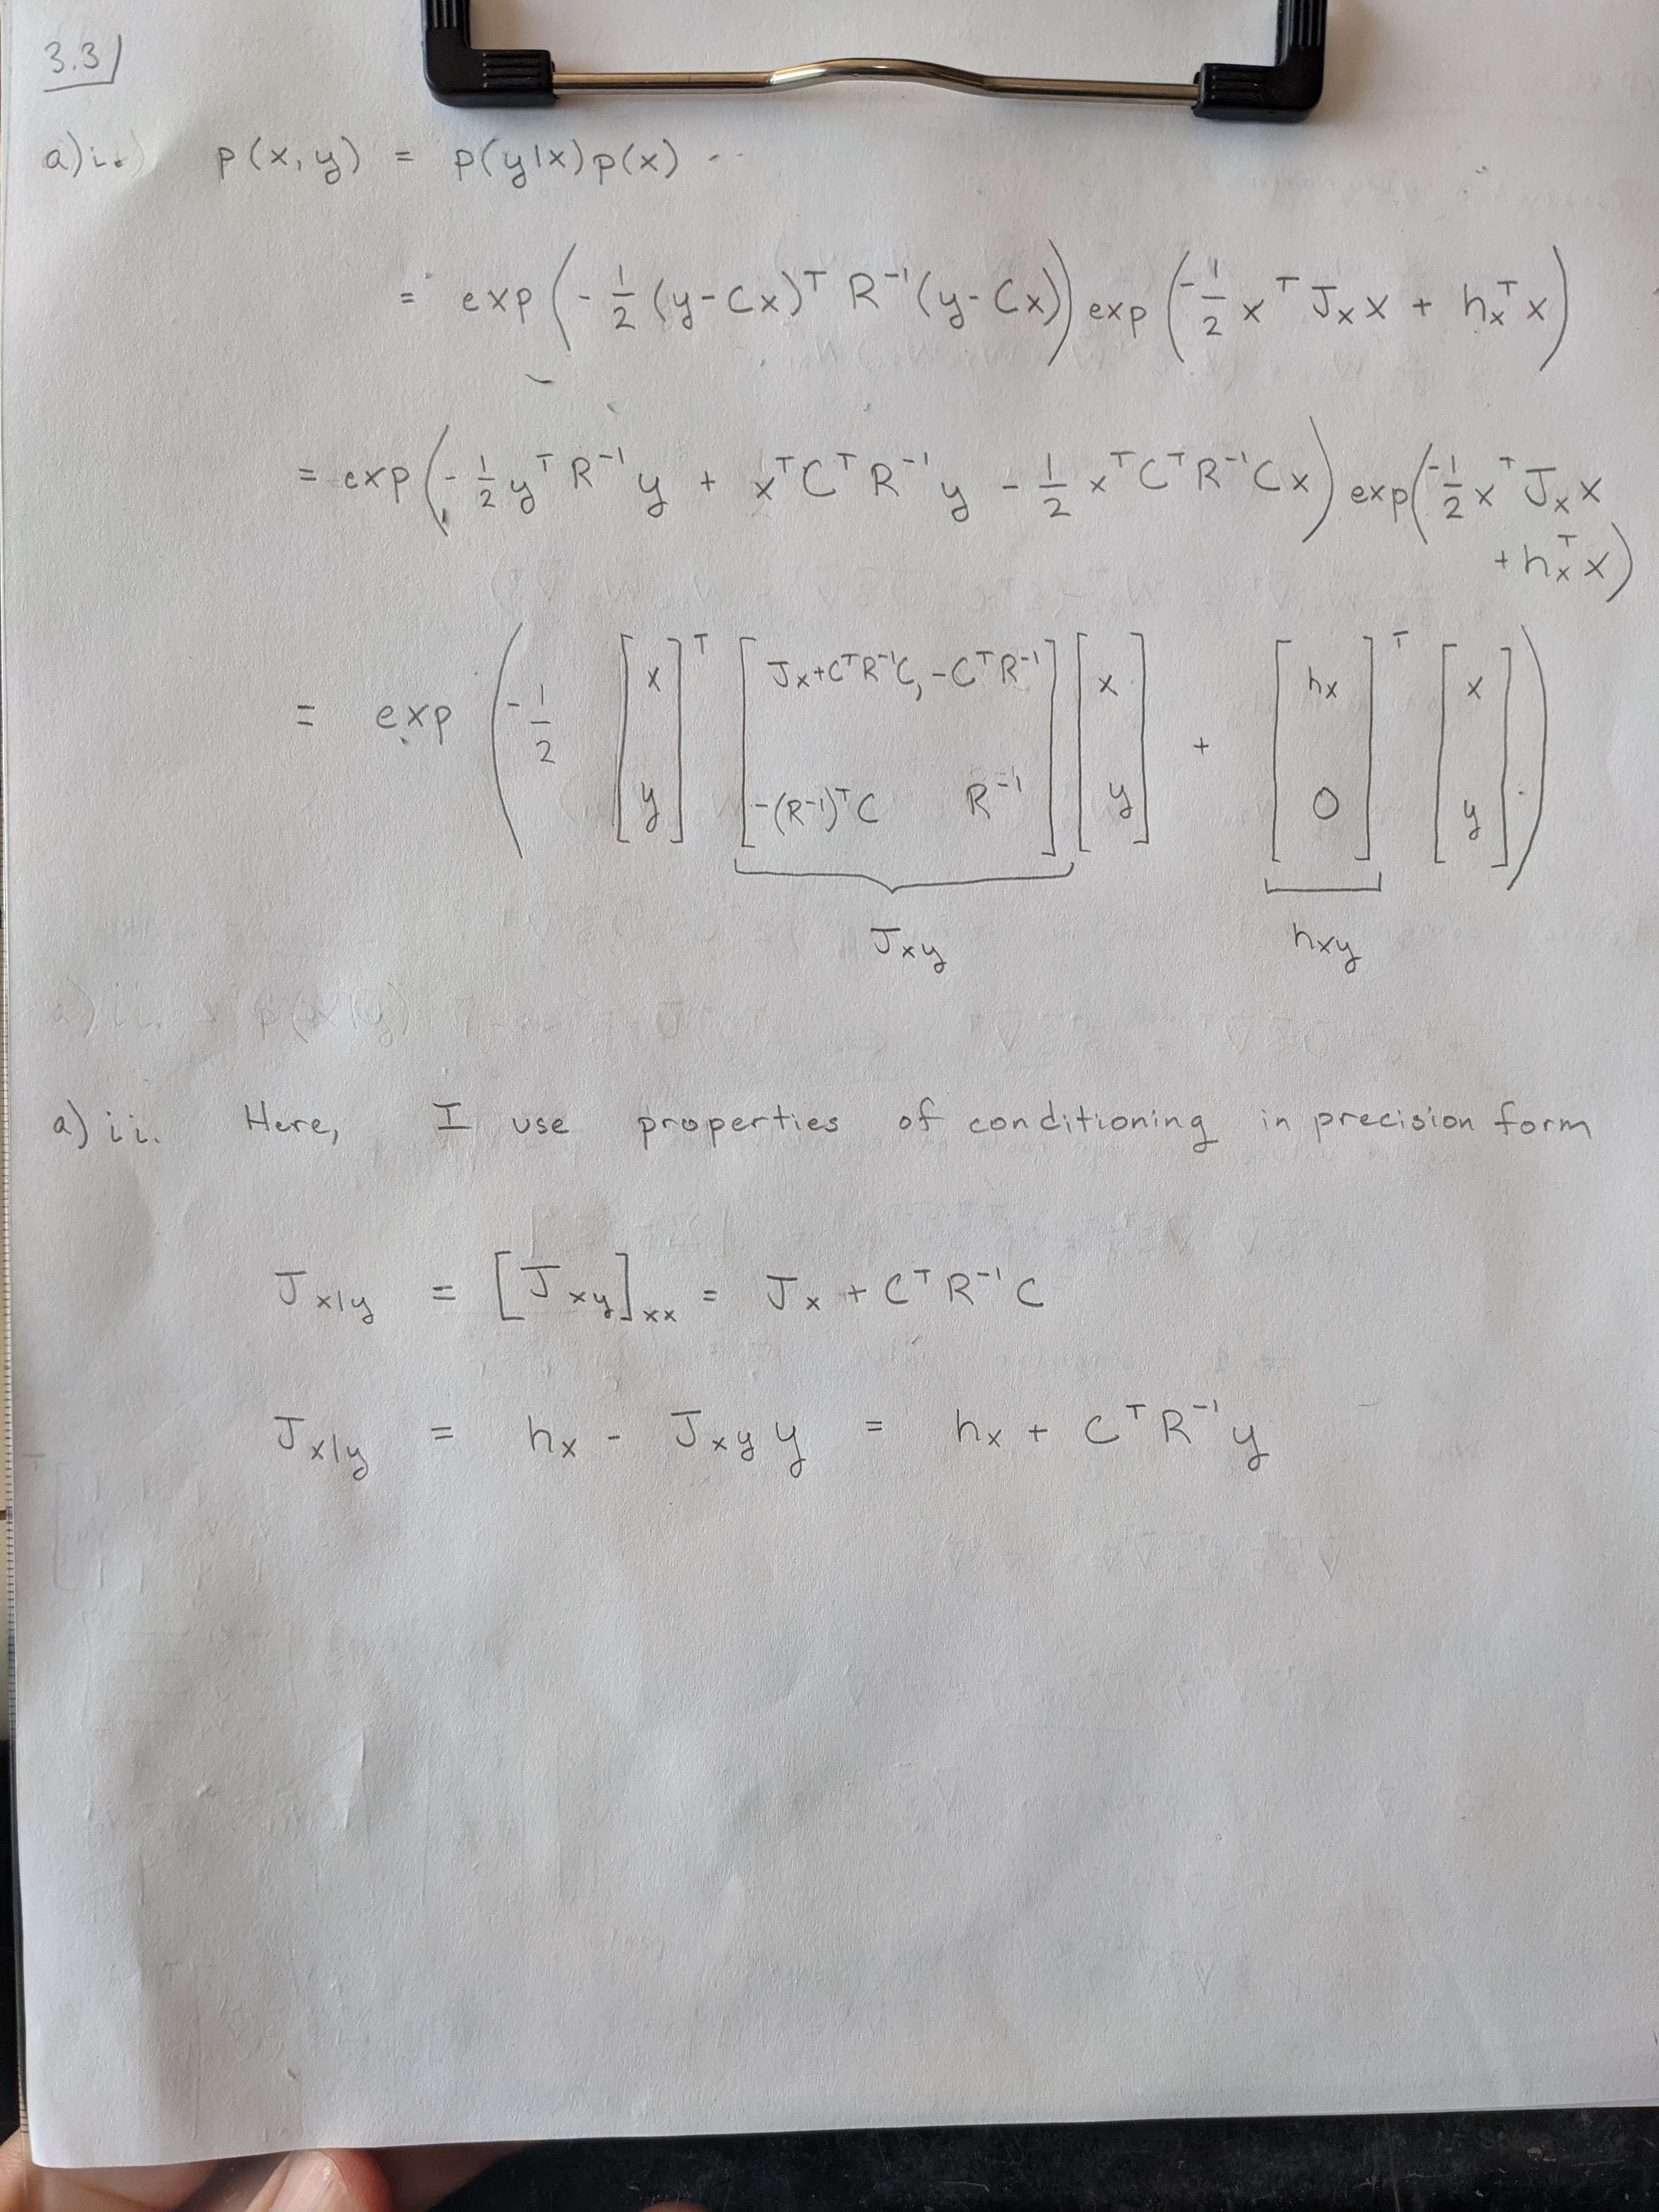 3.3
a)i.) p(x,y) = p(y|x)p(x)
= exp(-1/2 (y-Cx)ᵀ R⁻¹(y-Cx)) exp(-1/2 xᵀJₓx + hₓᵀx)
= exp(-1/2 yᵀR⁻¹y + xᵀCᵀR⁻¹y - 1/2 xᵀCᵀR⁻¹Cx) exp(-1/2 xᵀJₓx
+hₓᵀx)
= exp(-1/2 [x; y]ᵀ [Jₓ+CᵀR⁻¹C, -CᵀR⁻¹; -(R⁻¹)ᵀC R⁻¹] [x; y] + [hₓ; 0]ᵀ [x; y])
J_xy h_xy
a) ii. Here, I use properties of conditioning in precision form
J_x|y = [J_xy]_xx = Jₓ + CᵀR⁻¹C
J_x|y = hₓ - J_xy y = hₓ + CᵀR⁻¹y